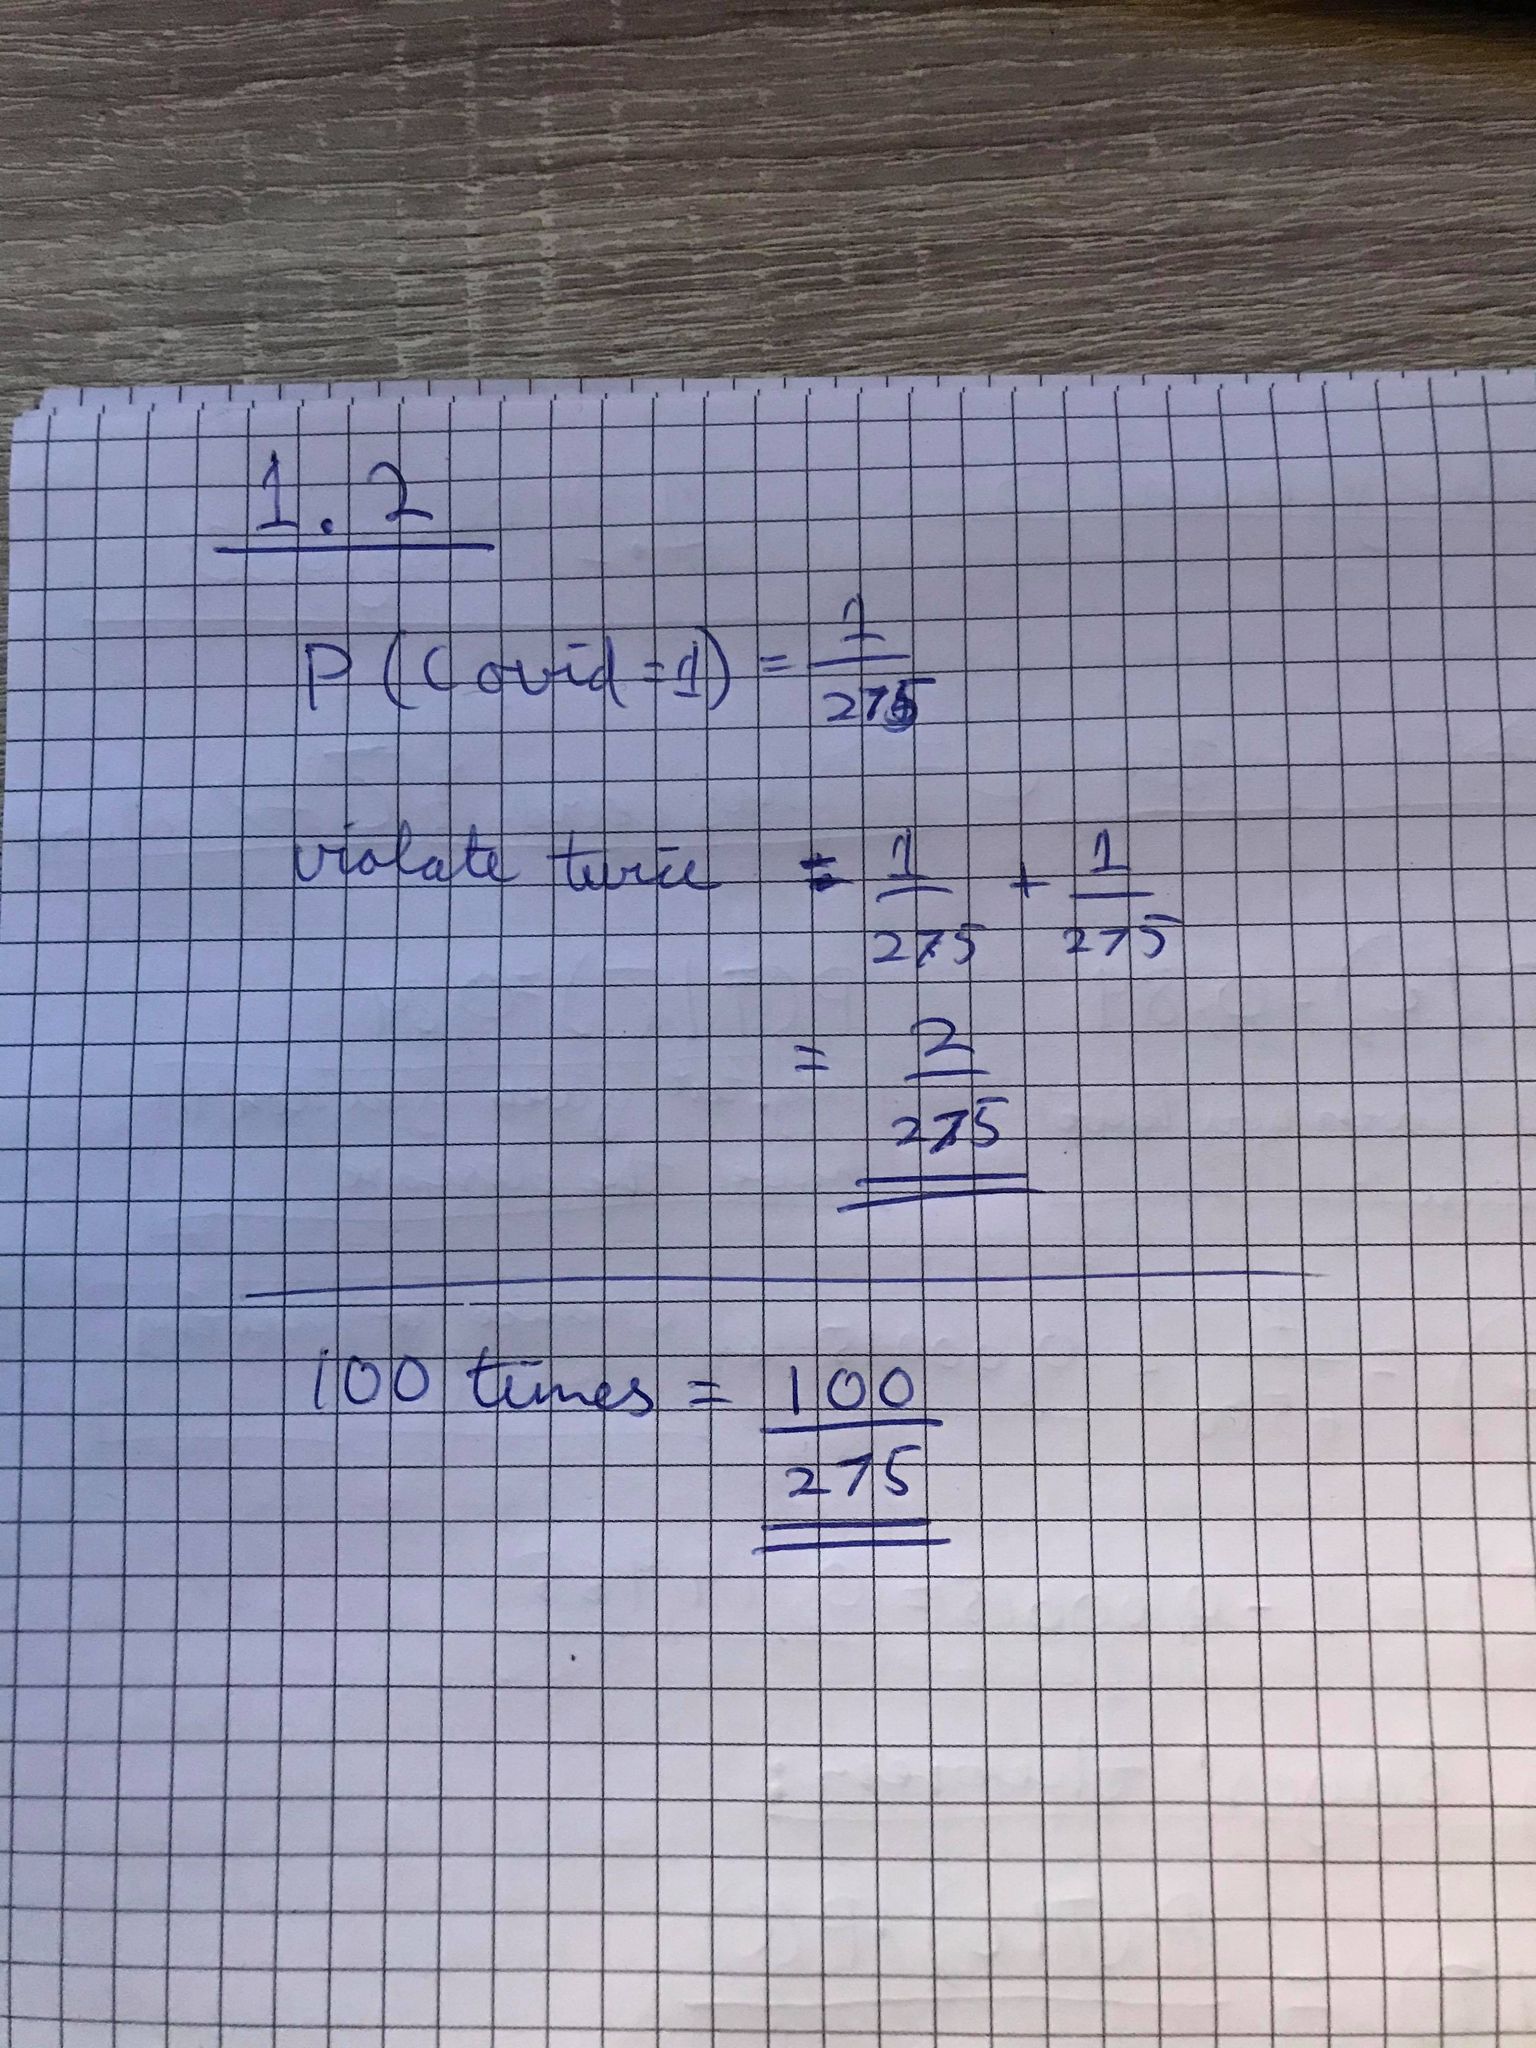 1. 2
P (Covid=1) = 1/275
violate twice = 1/275 + 1/275
= 2/275
100 times = 100/275